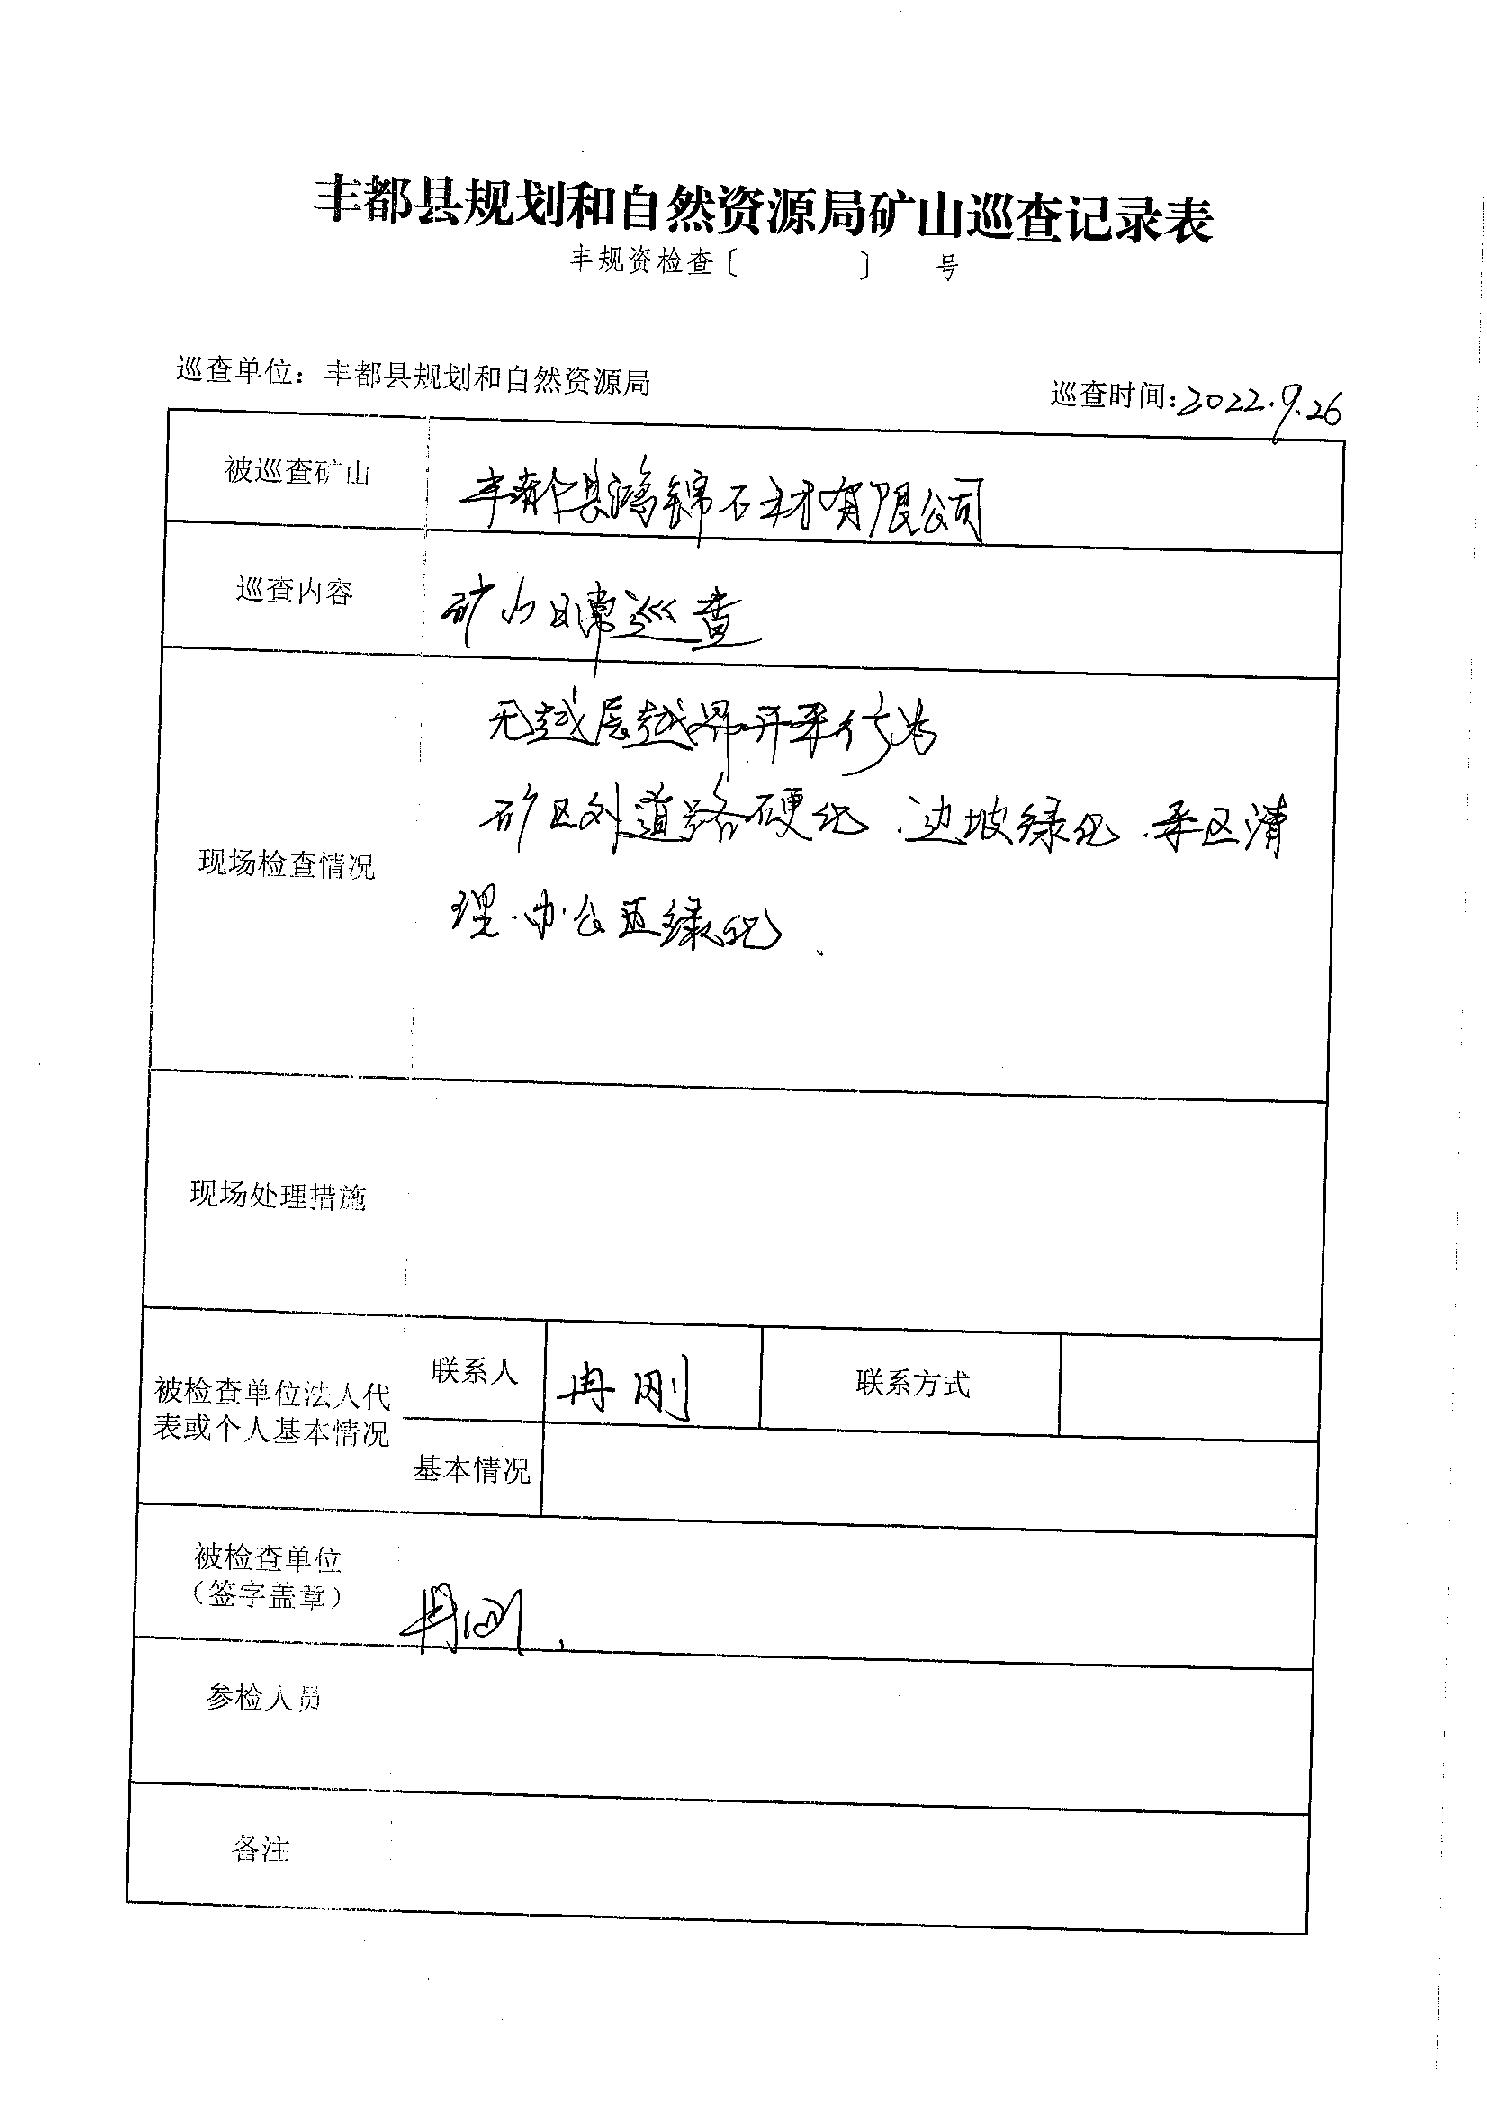 丰都县规划和自然资源局矿山巡查记录表
丰规资检查〔 〕 号
巡查单位：丰都县规划和自然资源局 巡查时间：2022.9.26
被巡查矿山 丰都县鸿锦石材有限公司
巡查内容 矿山日常巡查
无越层越界开采行为
矿区外道路硬化、边坡绿化、采区清
现场检查情况
理、办公区绿化
现场处理措施
联系人 冉刚 联系方式
被检查单位法人代
表或个人基本情况
基本情况
被检查单位
（签字盖章）
冉刚
参检人员
备注